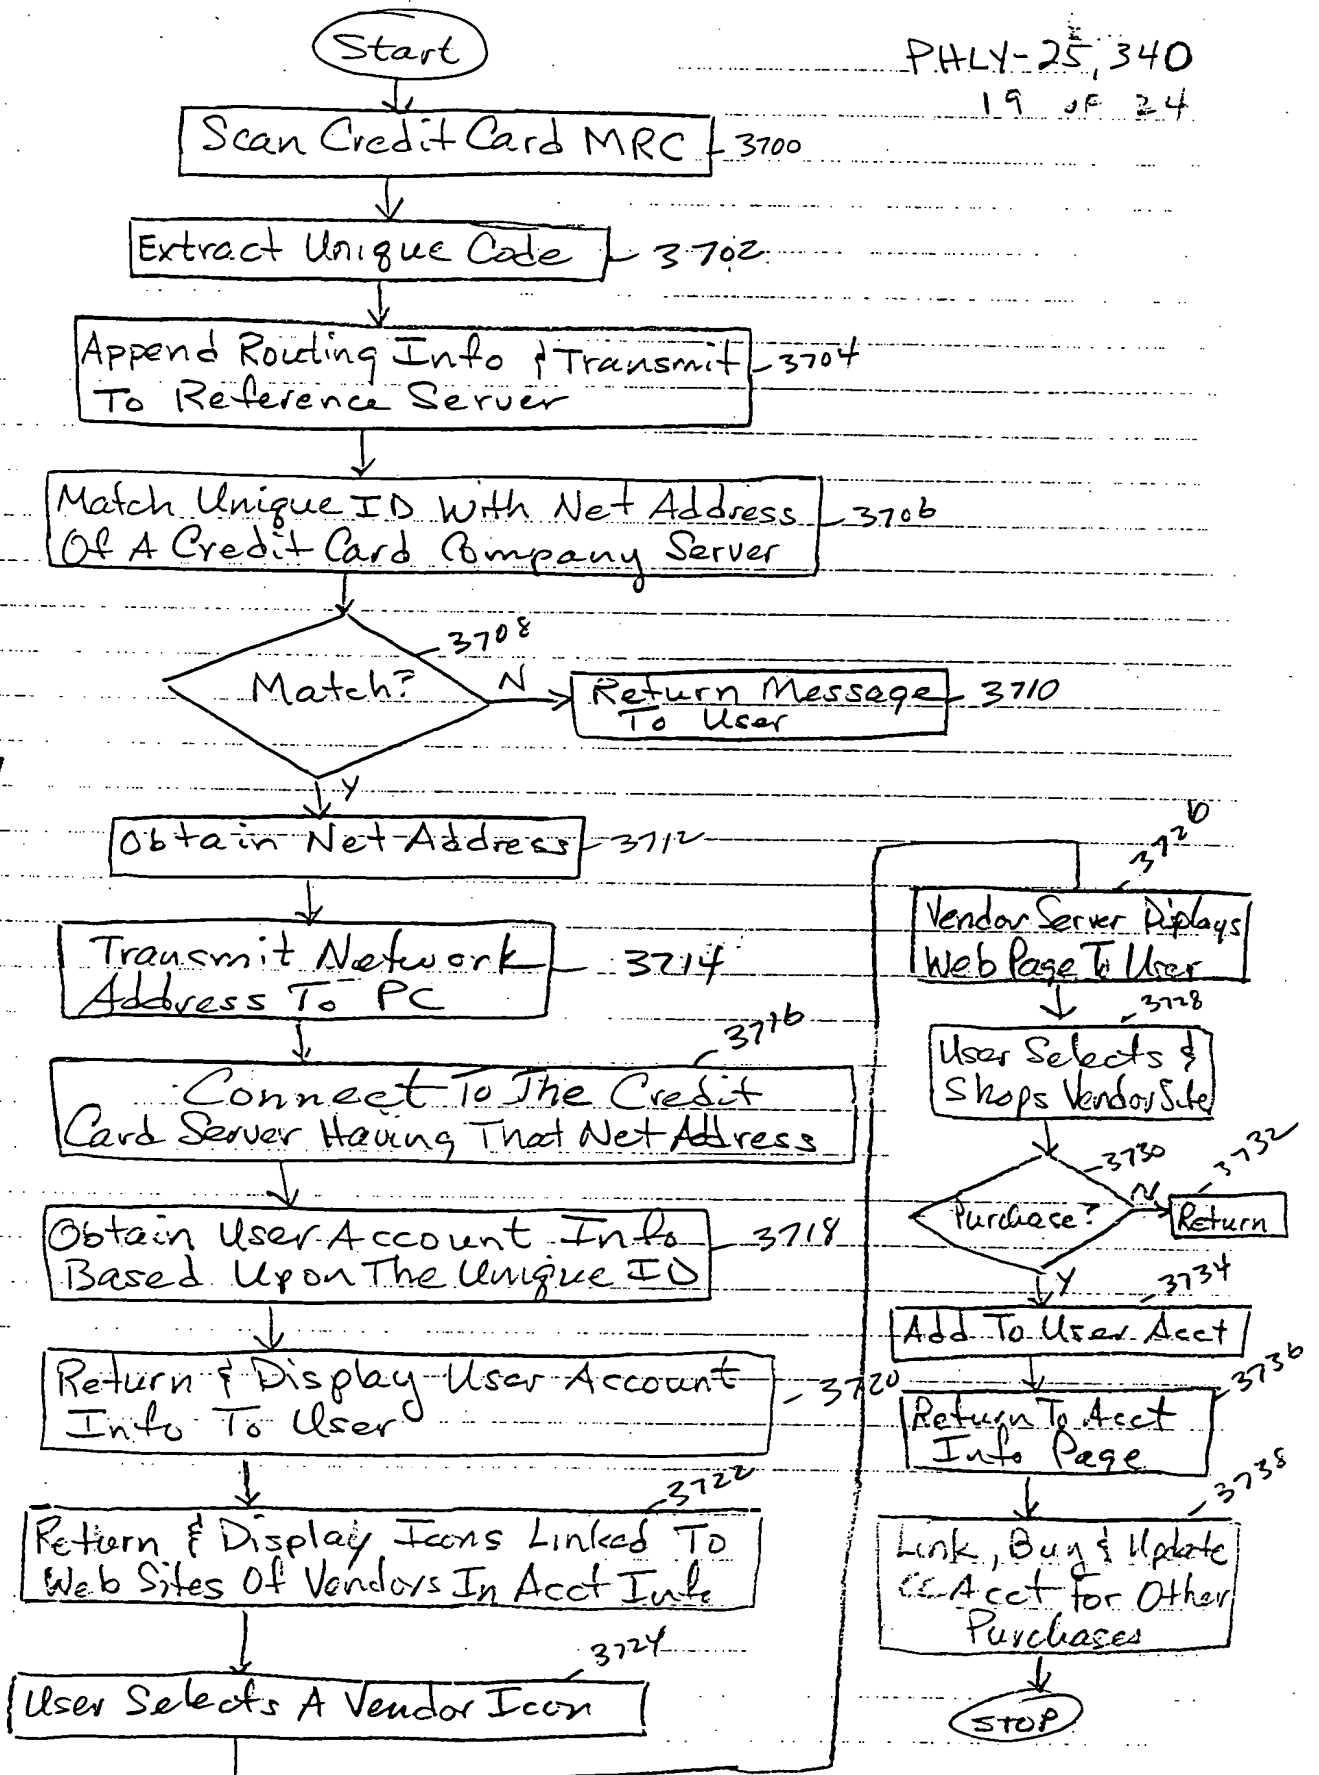 Start
PHLY-25,340
19 of 24
Scan Credit Card MRC 3700
Extract Unique Code 3702
Append Routing Info & Transmit 3704
To Reference Server
Match Unique ID With Net Address 3706
Of A Credit Card Company Server
3708
Match?
N
Return Message 3710
To User
Y
Obtain Net Address 3712
Transmit Network 3714
Address To PC
3716
Connect To The Credit
Card Server Having That Net Address
Obtain User Account Info 3718
Based Upon The Unique ID
Return & Display User Account 3720
Info To User
3722
Return & Display Icons Linked To
Web Sites Of Vendors In Acct Info
3724
User Selects A Vendor Icon
3726
Vendor Server Diplays
Web Page To User
3728
User Selects &
Shops Vendor Site
3730
Purchase?
N
3732
Return
Y
3734
Add To User Acct
3736
Return To Acct
Info Page
3738
Link, Buy & Update
CC Acct For Other
Purchases
STOP